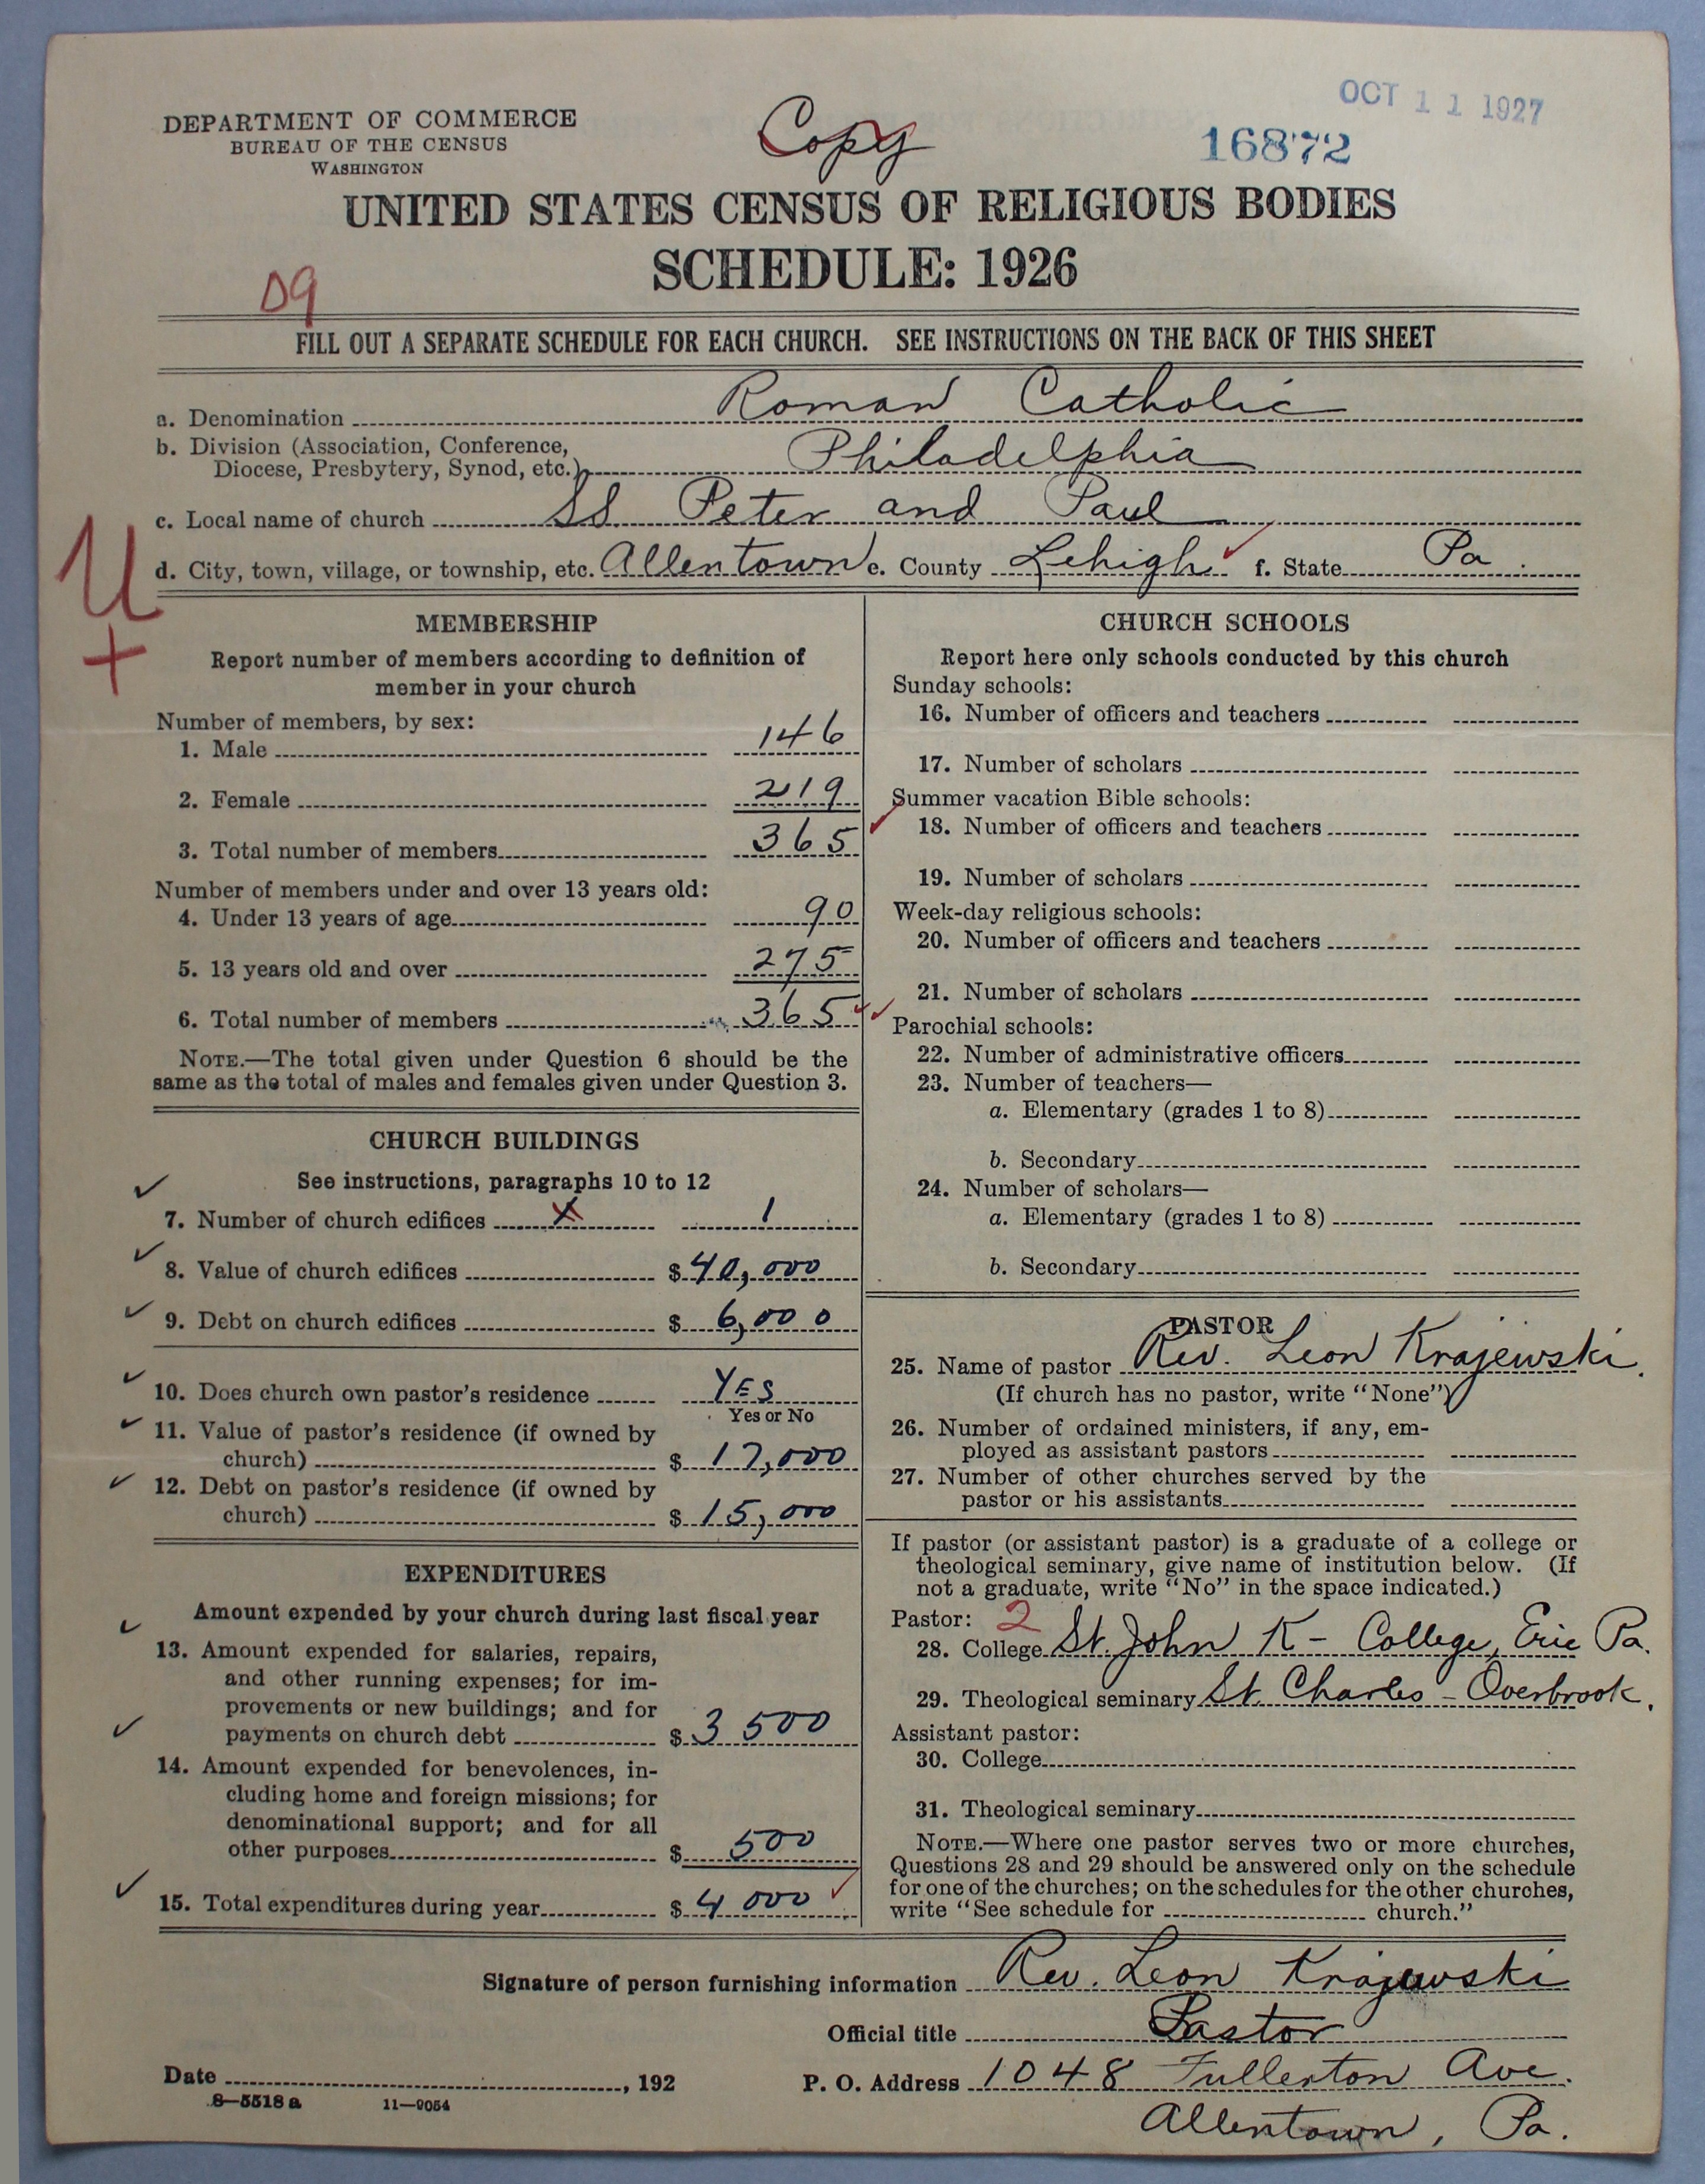 OCT 11 1927
DEPARTMENT OF COMMERCE
BUREAU OF THE CENSUS
WASHINGTON
Copy
16872
UNITED STATES CENSUS OF RELIGIOUS BODIES
SCHEDULE: 1926
09
FILL OUT A SEPARATE SCHEDULE FOR EACH CHURCH. SEE INSTRUCTIONS ON THE BACK OF THIS SHEET
a. Denomination Roman Catholic
b. Division (Association, Conference,
Diocese, Presbytery, Synod, etc.) Philadelphia
c. Local name of church SS Peter and Paul
U
d. City, town, village, or township, etc. Allentown e. County Lehigh f. State Pa
+
MEMBERSHIP
Report number of members according to definition of
member in your church
Number of members, by sex:
1. Male 146
2. Female 219
3. Total number of members 365
Number of members under and over 13 years old:
4. Under 13 years of age 90
5. 13 years old and over 275
6. Total number of members 365
NOTE.—The total given under Question 6 should be the
same as the total of males and females given under Question 3.
CHURCH BUILDINGS
See instructions, paragraphs 10 to 12
7. Number of church edifices X 1
8. Value of church edifices $ 40,000
9. Debt on church edifices $ 6,000
10. Does church own pastor's residence YES
Yes or No
11. Value of pastor's residence (if owned by
church) $ 17,000
12. Debt on pastor's residence (if owned by
church) $ 15,000
EXPENDITURES
Amount expended by your church during last fiscal year
13. Amount expended for salaries, repairs,
and other running expenses; for im-
provements or new buildings; and for
payments on church debt $ 3 500
14. Amount expended for benevolences, in-
cluding home and foreign missions; for
denominational support; and for all
other purposes $ 500
15. Total expenditures during year $ 4 000
CHURCH SCHOOLS
Report here only schools conducted by this church
Sunday schools:
16. Number of officers and teachers
17. Number of scholars
Summer vacation Bible schools:
18. Number of officers and teachers
19. Number of scholars
Week-day religious schools:
20. Number of officers and teachers
21. Number of scholars
Parochial schools:
22. Number of administrative officers
23. Number of teachers—
a. Elementary (grades 1 to 8)
b. Secondary
24. Number of scholars—
a. Elementary (grades 1 to 8)
b. Secondary
PASTOR
25. Name of pastor Rev. Leon Krajewski.
(If church has no pastor, write "None")
26. Number of ordained ministers, if any, em-
ployed as assistant pastors
27. Number of other churches served by the
pastor or his assistants
If pastor (or assistant pastor) is a graduate of a college or
theological seminary, give name of institution below. (If
not a graduate, write "No" in the space indicated.)
Pastor: 2
28. College St. John K- College, Erie Pa.
29. Theological seminary St. Charles - Overbrook.
Assistant pastor:
30. College
31. Theological seminary
NOTE.—Where one pastor serves two or more churches,
Questions 28 and 29 should be answered only on the schedule
for one of the churches; on the schedules for the other churches,
write "See schedule for church."
Signature of person furnishing information Rev. Leon Krajewski
Official title Pastor
Date , 192
P. O. Address 1048 Fullerton Ave.
8—5518 a 11—9054
Allentown, Pa.